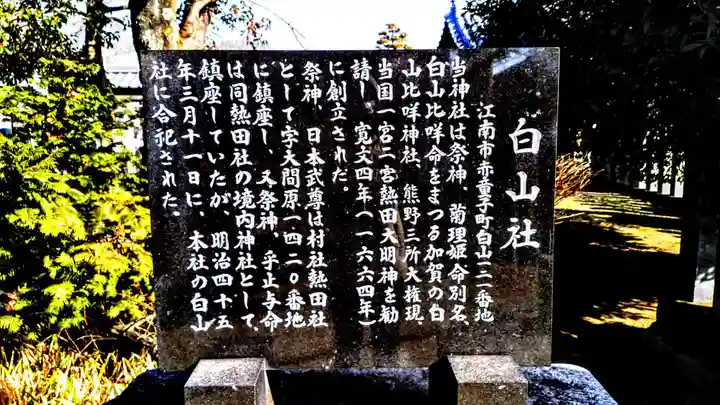 白山社
江南市赤童子町白山一二一番地
当神社は祭神、菊理姫命別名、
白山比咩命をまつる加賀の白
山比咩神社、熊野三所大権現、
当国一宮二宮熱田大明神を勧
請し、寛文四年(一六六四年)
に創立された。
祭神、日本武尊は村社熱田社
として字大間原一四二〇番地
に鎮座し、又祭神、乎止与命
は同熱田社の境内神社として、
鎮座していたが、明治四十五
年三月十一日に、本社の白山
社に合祀された。